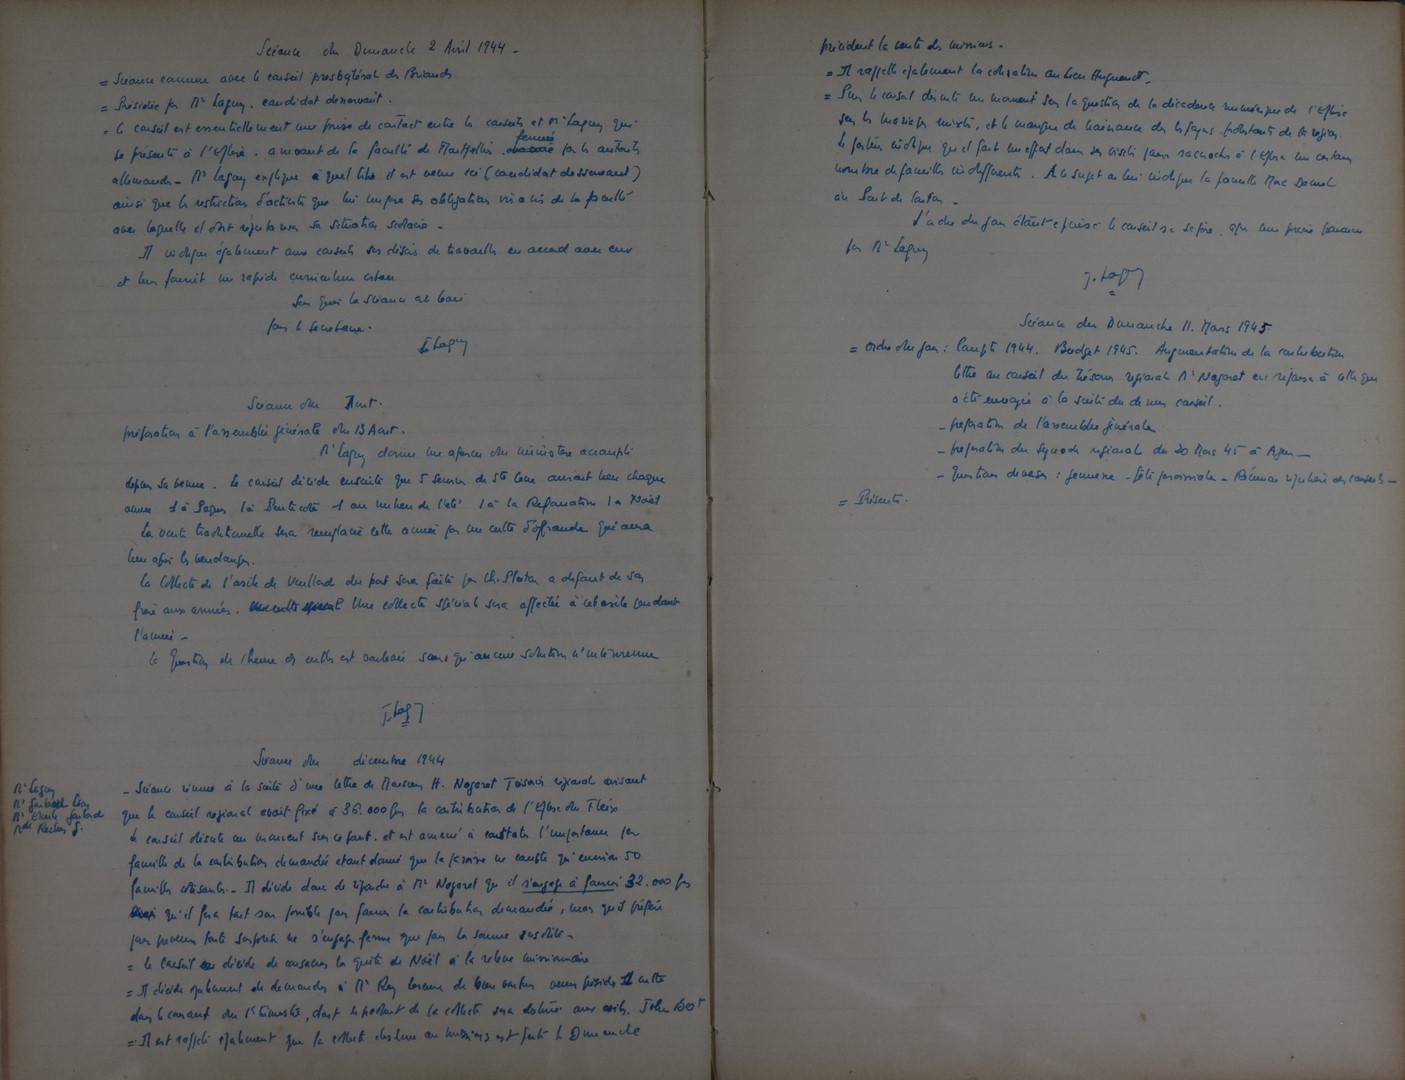 Séance du Dimanche 2 Avril 1944 -
= Séance commune avec le conseil presbytéral des Briands
= Présidée par Mr Lagny. candidat desservant.
= le conseil est essentiellement une prise de contact entre les conseils et Mr Lagny qui
se présente à l'Eglise. arrivant de la faculté de Montpellier fermée par les autorités
allemandes - Mr Lagny explique à quel titre il est venu ici (candidat desservant)
ainsi que la restriction d'activité que lui impose ses obligations vis à vis de la faculté
avec laquelle il doit régulariser sa situation scolaire -
Il indique également aux conseils ses désirs de travailler en accord avec eux
et leur fournit un rapide curriculum vitae
Sur quoi la séance est levée
pour le secrétaire.
J. Lagny
Séance du Août.
préparation à l'assemblée générale du 13 Août.
Mr Lagny donne un aperçu du ministère accompli
depuis sa venue. Le conseil décide ensuite que 5 services de Ste Cène auront lieu chaque
année 1 à Pâques 1 à Pentecôte 1 au milieu de l'été 1 à la Réformation 1 à Noël
La vente traditionnelle sera remplacée cette année par un culte d'offrande qui aura
lieu après les vendanges.
La collecte de l'asile de vieillard du port sera faite par Ch. a défaut de son
frère aux armées. Une collecte spéciale sera affectée à cet asile pendant
l'année -
la Question de l'heure des cultes est soulevée sans qu'aucune solution n'intervienne
J. Lagny
Séance du décembre 1944
Mr Lagny
Mr
Mr
Mr
- Séance réunie à la suite d'une lettre de Monsieur H. Nogaret Trésorier régional avisant
que le conseil régional avait fixé à 36.000 frs la contribution de l'Eglise du Fleix
Le conseil discute un moment sur ce point. et est amené à constater l'importance par
famille de la contribution demandée étant donné que la paroisse ne compte qu'environ 50
familles cotisantes - Il décide donc de répondre à Mr Nogaret qu'il s'engage à fournir 32.000 frs
qu'il fera tout son possible pour fournir la contribution demandée, mais qu'il préfère
pour prévenir toute surprise ne s'engager ferme que pour la somme susdite -
= le Conseil décide de consacrer la quête de Noël à la relève missionnaire
= Il décide également de demander à Mr Rey de bien vouloir venir présider un culte
dans le courant du 1er trimestre, dont le produit de la collecte sera destiné aux asiles John Bost
= Il est rappelé également que la collecte destinée aux missions est faite le Dimanche
précédent la vente des missions.
= Il rappelle également la cotisation au lien Huguenot.
= Puis le conseil discute un moment sur la question de la décadence numérique de l'Eglise
sur les mariages mixtes, et le manque de naissance des foyers protestants de la région.
Le pasteur indique qu'il fait un effort dans ses visites pour raccrocher à l'Eglise un certain
nombre de familles indifférentes. A ce sujet on lui indique la famille Marc
au
L'ordre du jour étant épuisé le conseil se sépare, après une prière prononcée
par Mr Lagny
J. Lagny
Séance du Dimanche 11. Mars 1945
= Ordre du jour: Compte 1944. Budget 1945. Augmentation de la contribution
lettre au conseil du trésorier régional Mr Nogaret en réponse à celle qui
a été envoyée à la suite du dernier conseil.
- préparation de l'assemblée générale
- préparation du synode régional du 20 Mars 45 à Agen -
- Questions diverses : jeunesse - fête paroissiale - Réunion régulière des conseils -
= Présents.